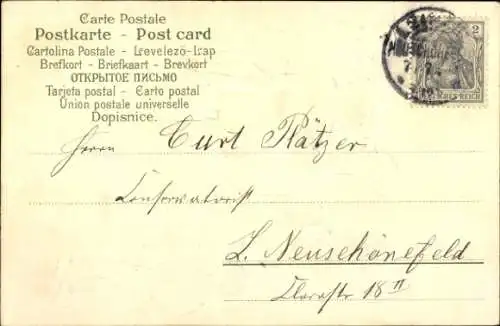 Carte Postale
Postkarte - Post card
Cartolina Postale - Levelező-Lap
Brefkort - Briefkaart - Brevkort
ОТКРЫТОЕ ПИСЬМО
Tarjeta postal - Carto postal
Union postale universelle
Dopisnice.
2
REICH
Herrn Curt Plätzer
Conservatorist
L. Neuschönefeld
Clarastr 18 II